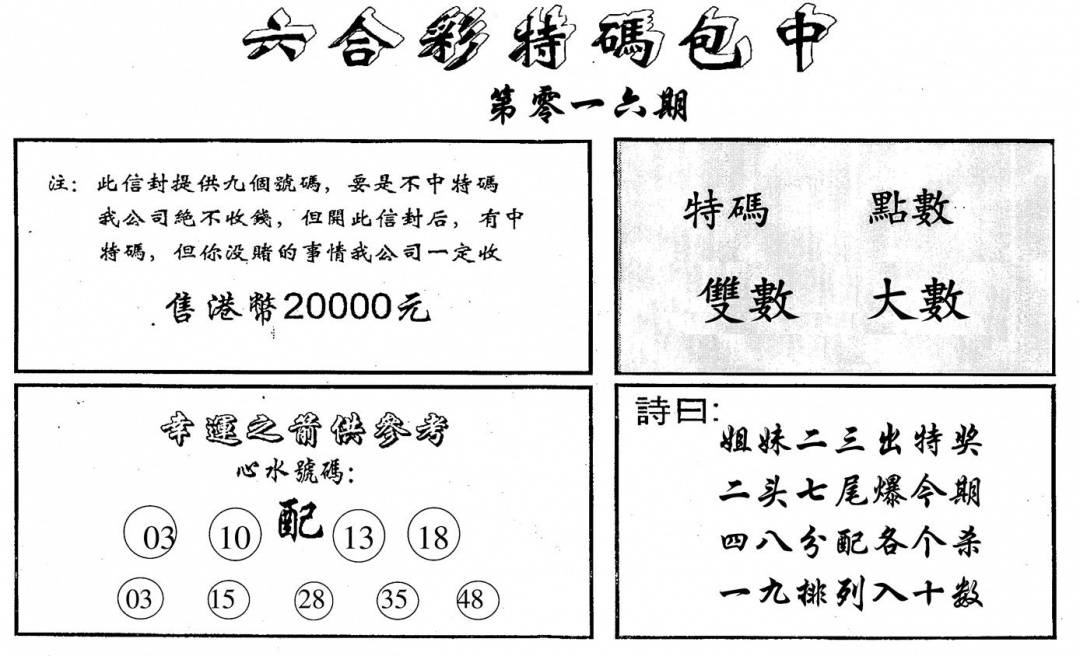 六合彩特碼包中
第零一六期
注：此信封提供九個號碼，要是不中特碼
我公司絕不收錢，但開此信封后，有中
特碼，但你没賭的事情我公司一定收
售港幣20000元
特碼 點數
雙數 大數
幸運之箭供參考
心水號碼：
03 10 配 13 18
03 15 28 35 48
詩曰：
姐妹二三出特奖
二头七尾爆今期
四八分配各个杀
一九排列入十数